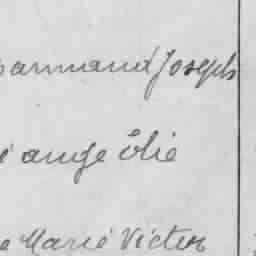 armand Joseph
é ange Élie
e Marie Victor